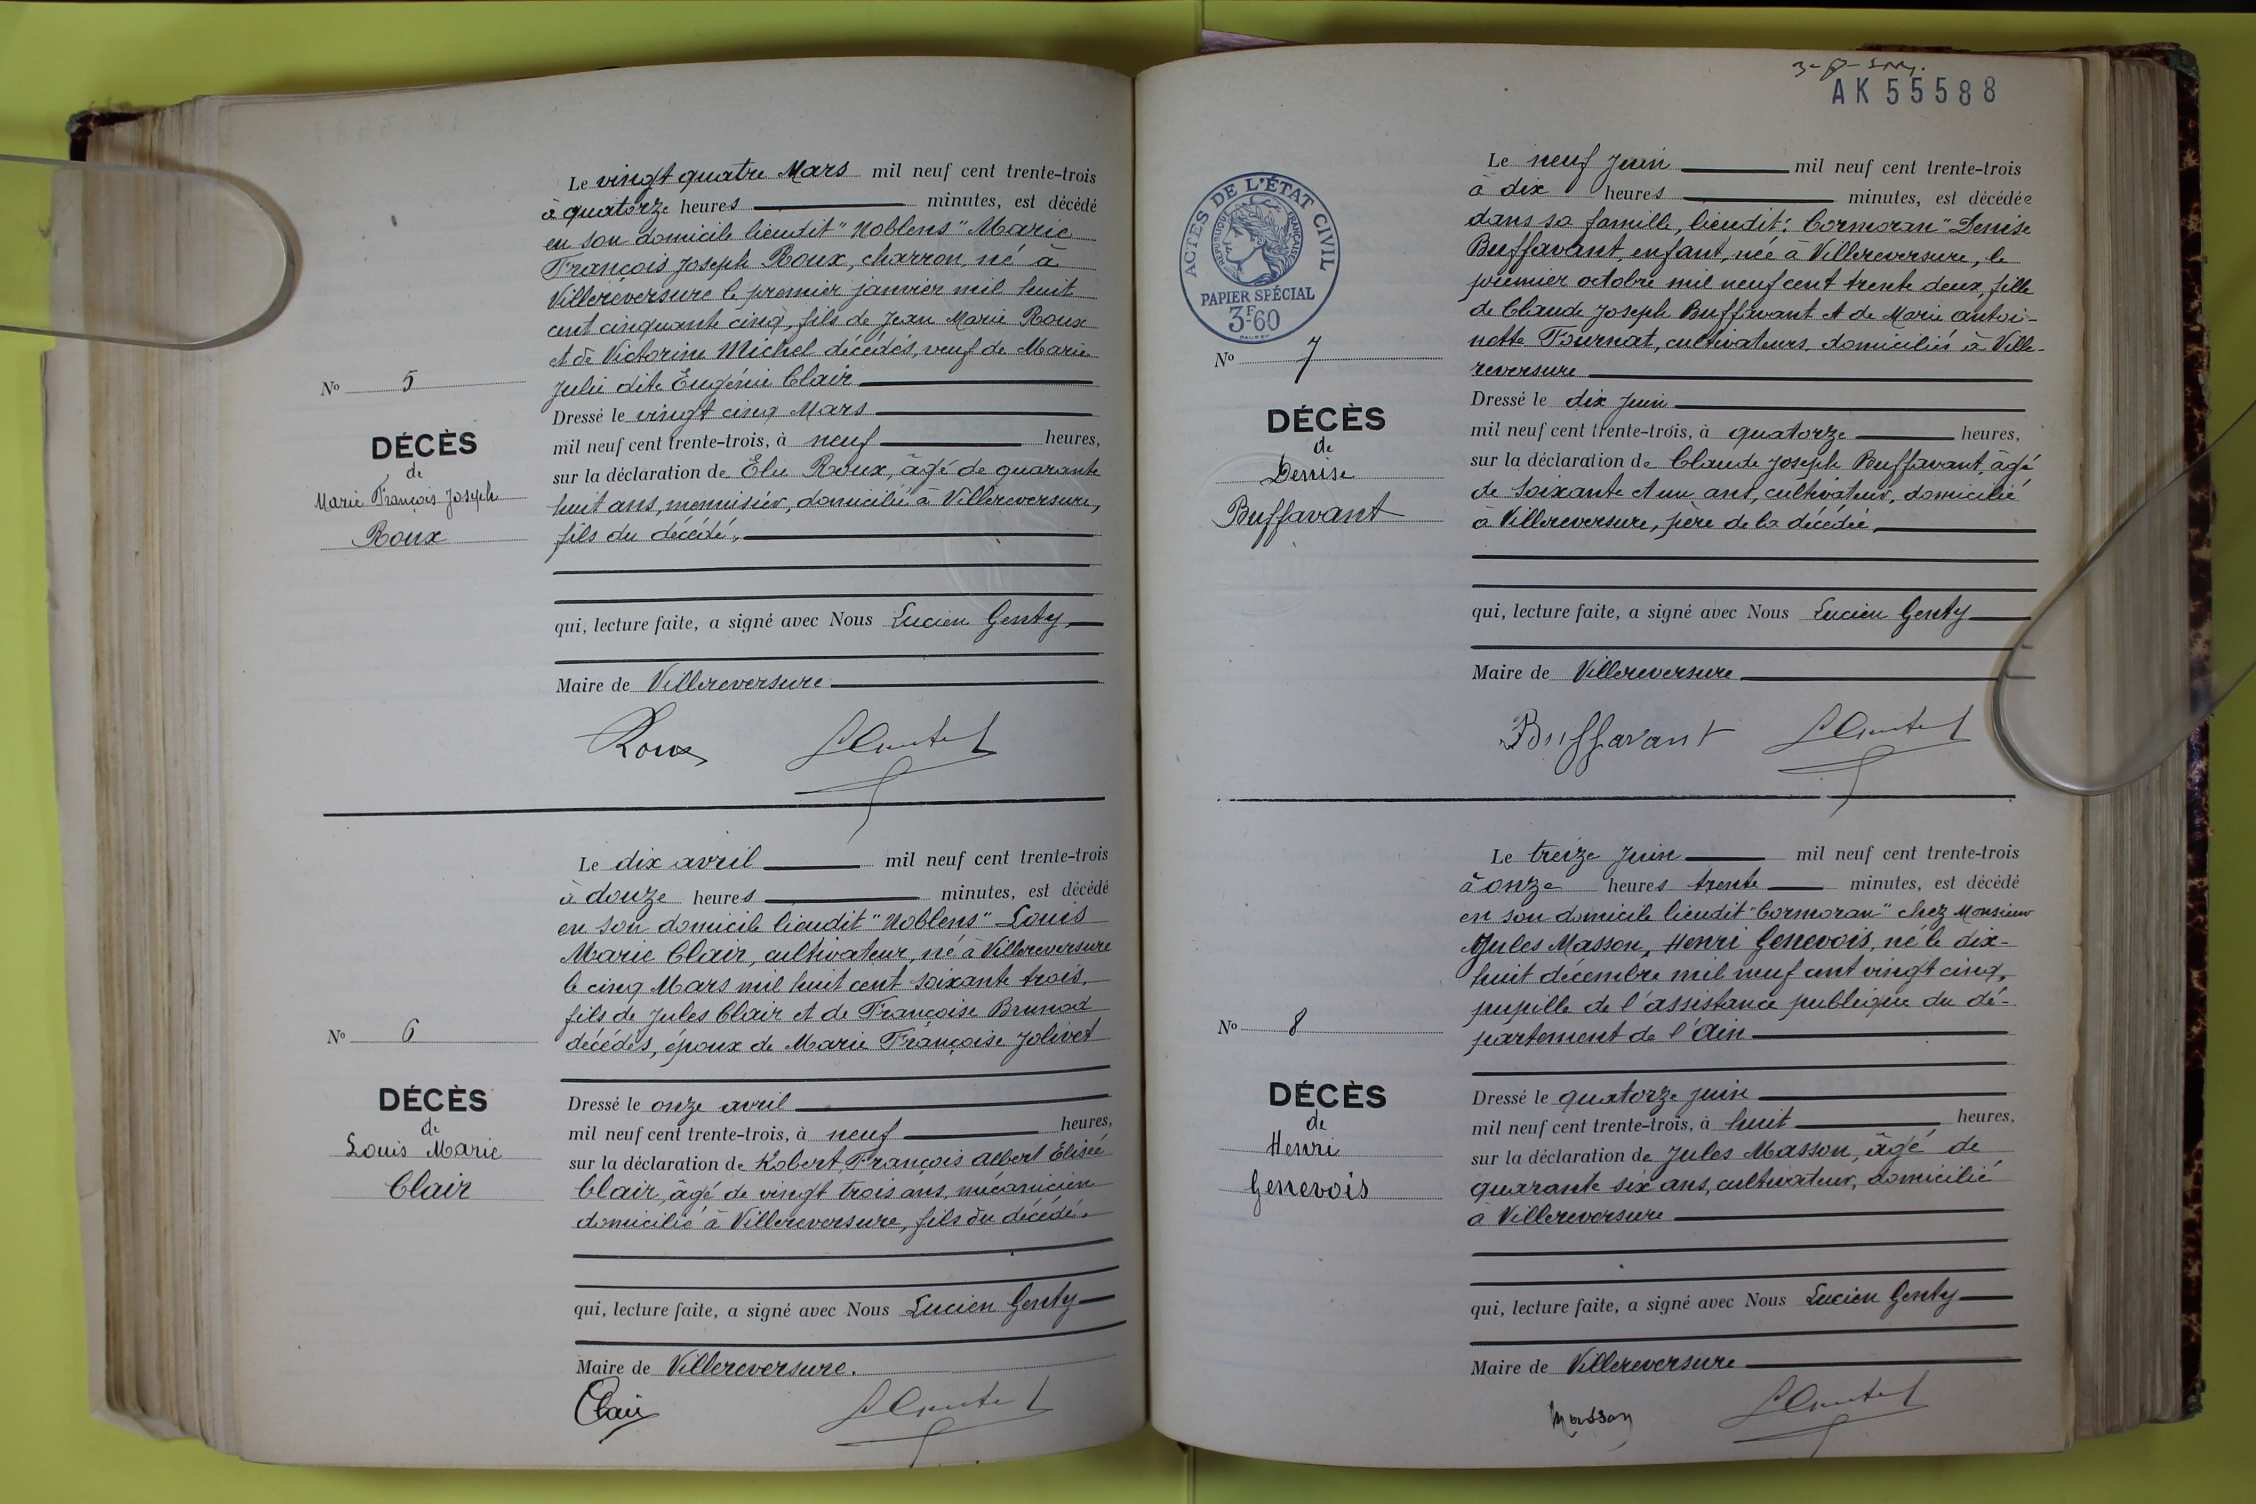 Le vingt quatre Mars mil neuf cent trente-trois
à quatorze heures minutes, est décédé
en son domicile lieudit "Noblens" Marie
François Joseph Roux, charron, né à
Villereversure le premier janvier mil huit
cent cinquante cinq, fils de Jean Marie Roux
et de Victorine Michel décédés, veuf de Marie
Julie dite Eugénie Clair
Nº 5
DÉCÈS
de
Marie François Joseph
Roux
Dressé le vingt cinq Mars
mil neuf cent trente-trois, à neuf heures,
sur la déclaration de Elie Roux, âgé de quarante
huit ans, menuisier, domicilié à Villereversure,
fils du décédé.
qui, lecture faite, a signé avec Nous Lucien Genty
Maire de Villereversure
Roux
Le dix avril mil neuf cent trente-trois
à douze heures minutes, est décédé
en son domicile lieudit "Noblens" Louis
Marie Clair, cultivateur, né à Villereversure
le cinq Mars mil huit cent soixante trois,
fils de Jules Clair et de Françoise Brunod
décédés, époux de Marie Françoise Jolivet
Nº 6
DÉCÈS
de
Louis Marie
Clair
Dressé le onze avril
mil neuf cent trente-trois, à neuf heures,
sur la déclaration de Robert François Albert Elisée
Clair, âgé de vingt trois ans, mécanicien
domicilié à Villereversure, fils du décédé.
qui, lecture faite, a signé avec Nous Lucien Genty
Maire de Villereversure.
Clair
AK 55588
ACTES DE L'ÉTAT CIVIL
RÉPUBLIQUE FRANÇAISE
PAPIER SPÉCIAL
3F60
Le neuf Juin mil neuf cent trente-trois
à dix heures minutes, est décédée
dans sa famille, lieudit: Cormoran" Denise
Buffavant, enfant, née à Villereversure, le
premier octobre mil neuf cent trente deux, fille
de Claude Joseph Buffavant et de Marie Antoi-
nette Fournat, cultivateurs, domiciliés à Ville-
reversure
Nº 7
DÉCÈS
de
Denise
Buffavant
Dressé le dix Juin
mil neuf cent trente-trois, à quatorze heures,
sur la déclaration de Claude Joseph Buffavant, âgé
de soixante et un ans, cultivateur, domicilié
à Villereversure, père de la décédée
qui, lecture faite, a signé avec Nous Lucien Genty
Maire de Villereversure
Buffavant
Le treize Juin mil neuf cent trente-trois
à onze heures trente minutes, est décédé
en son domicile lieudit "Cormoran" chez Monsieur
Jules Masson, Henri Genevois, né le dix-
huit décembre mil neuf cent vingt cinq,
pupille de l'assistance publique du dé-
partement de l'Ain
Nº 8
DÉCÈS
de
Henri
Genevois
Dressé le quatorze juin
mil neuf cent trente-trois, à huit heures,
sur la déclaration de Jules Masson, âgé de
quarante six ans, cultivateur, domicilié
à Villereversure
qui, lecture faite, a signé avec Nous Lucien Genty
Maire de Villereversure
Masson